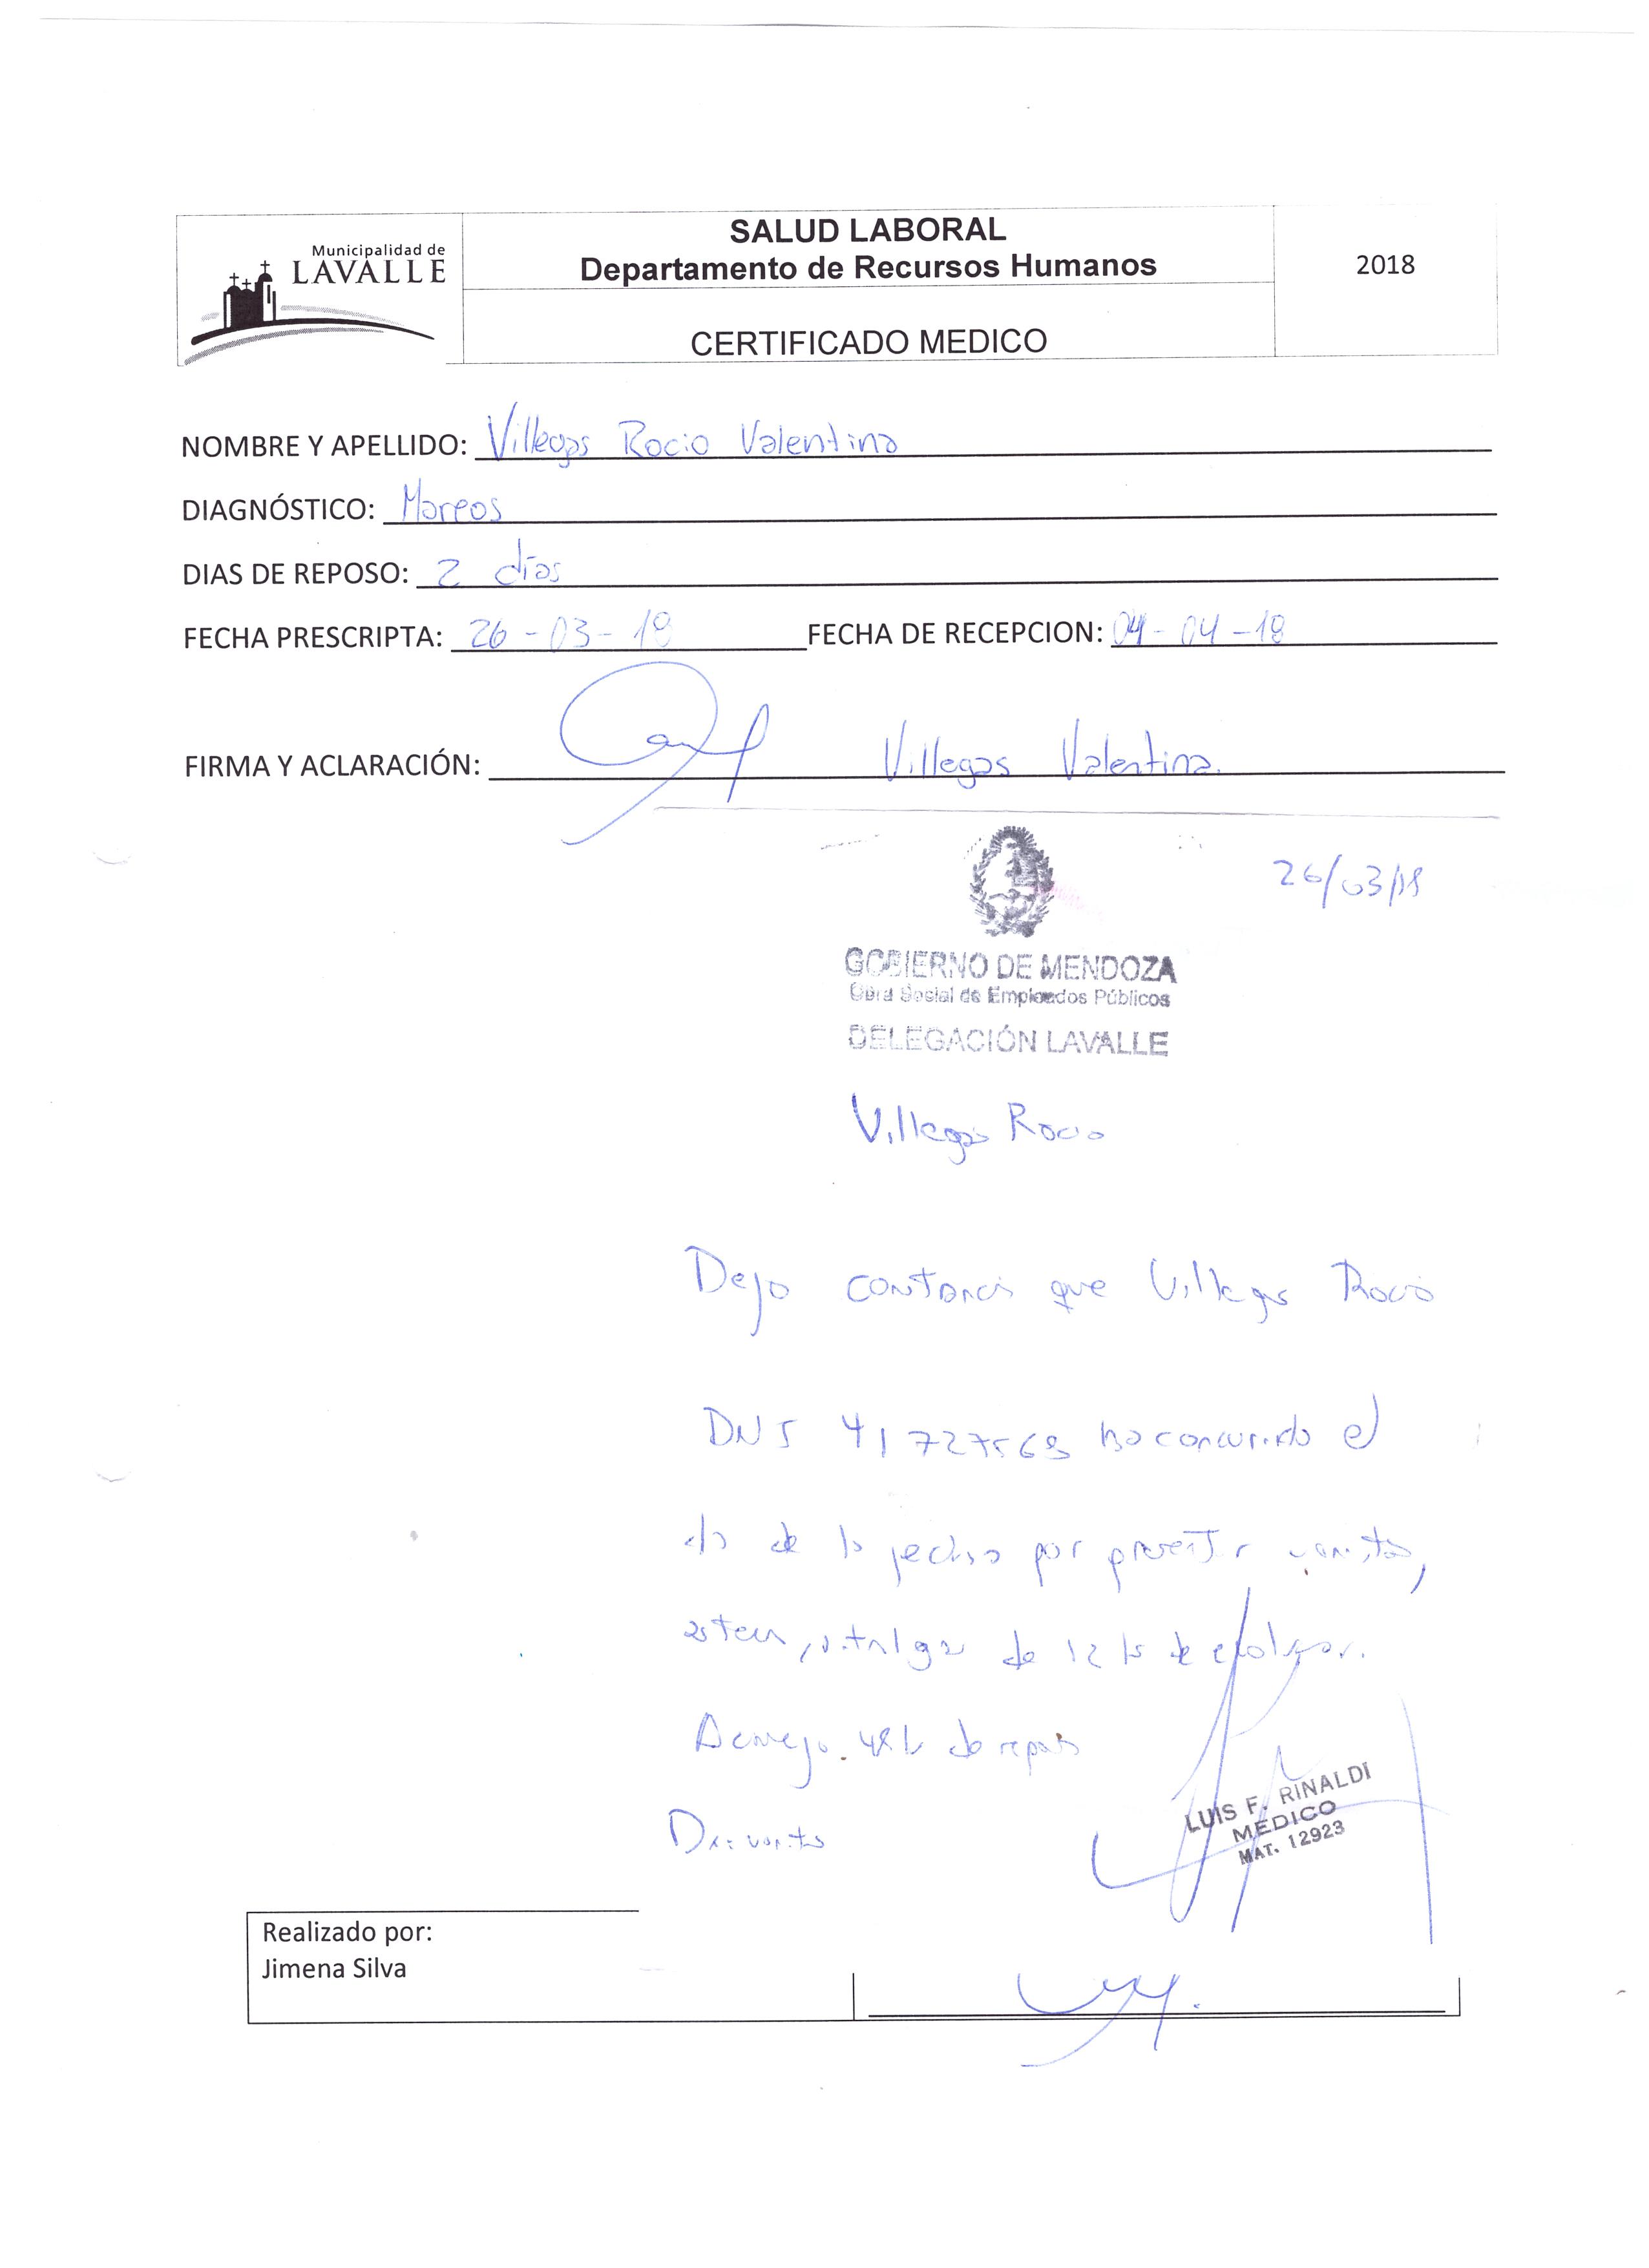 Municipalidad de
LAVALLE
SALUD LABORAL
Departamento de Recursos Humanos
CERTIFICADO MEDICO
2018
NOMBRE Y APELLIDO: Villegas Rocio Valentina
DIAGNÓSTICO: Mareos
DIAS DE REPOSO: 2 días
FECHA PRESCRIPTA: 26-03-18 FECHA DE RECEPCION: 04-04-18
FIRMA Y ACLARACIÓN: Villegas Valentina.
26/03/18
GOBIERNO DE MENDOZA
Obra Social de Empleados Públicos
DELEGACIÓN LAVALLE
Villegas Rocio
Dejo constancia que Villegas Rocio
DNI 41727568 ha concurrido el
dia de la fecha por presentar vomitos,
de 12 hs de
Aconsejo 48 h de reposo
LUIS F. RINALDI
MEDICO
MAT. 12923
Realizado por:
Jimena Silva